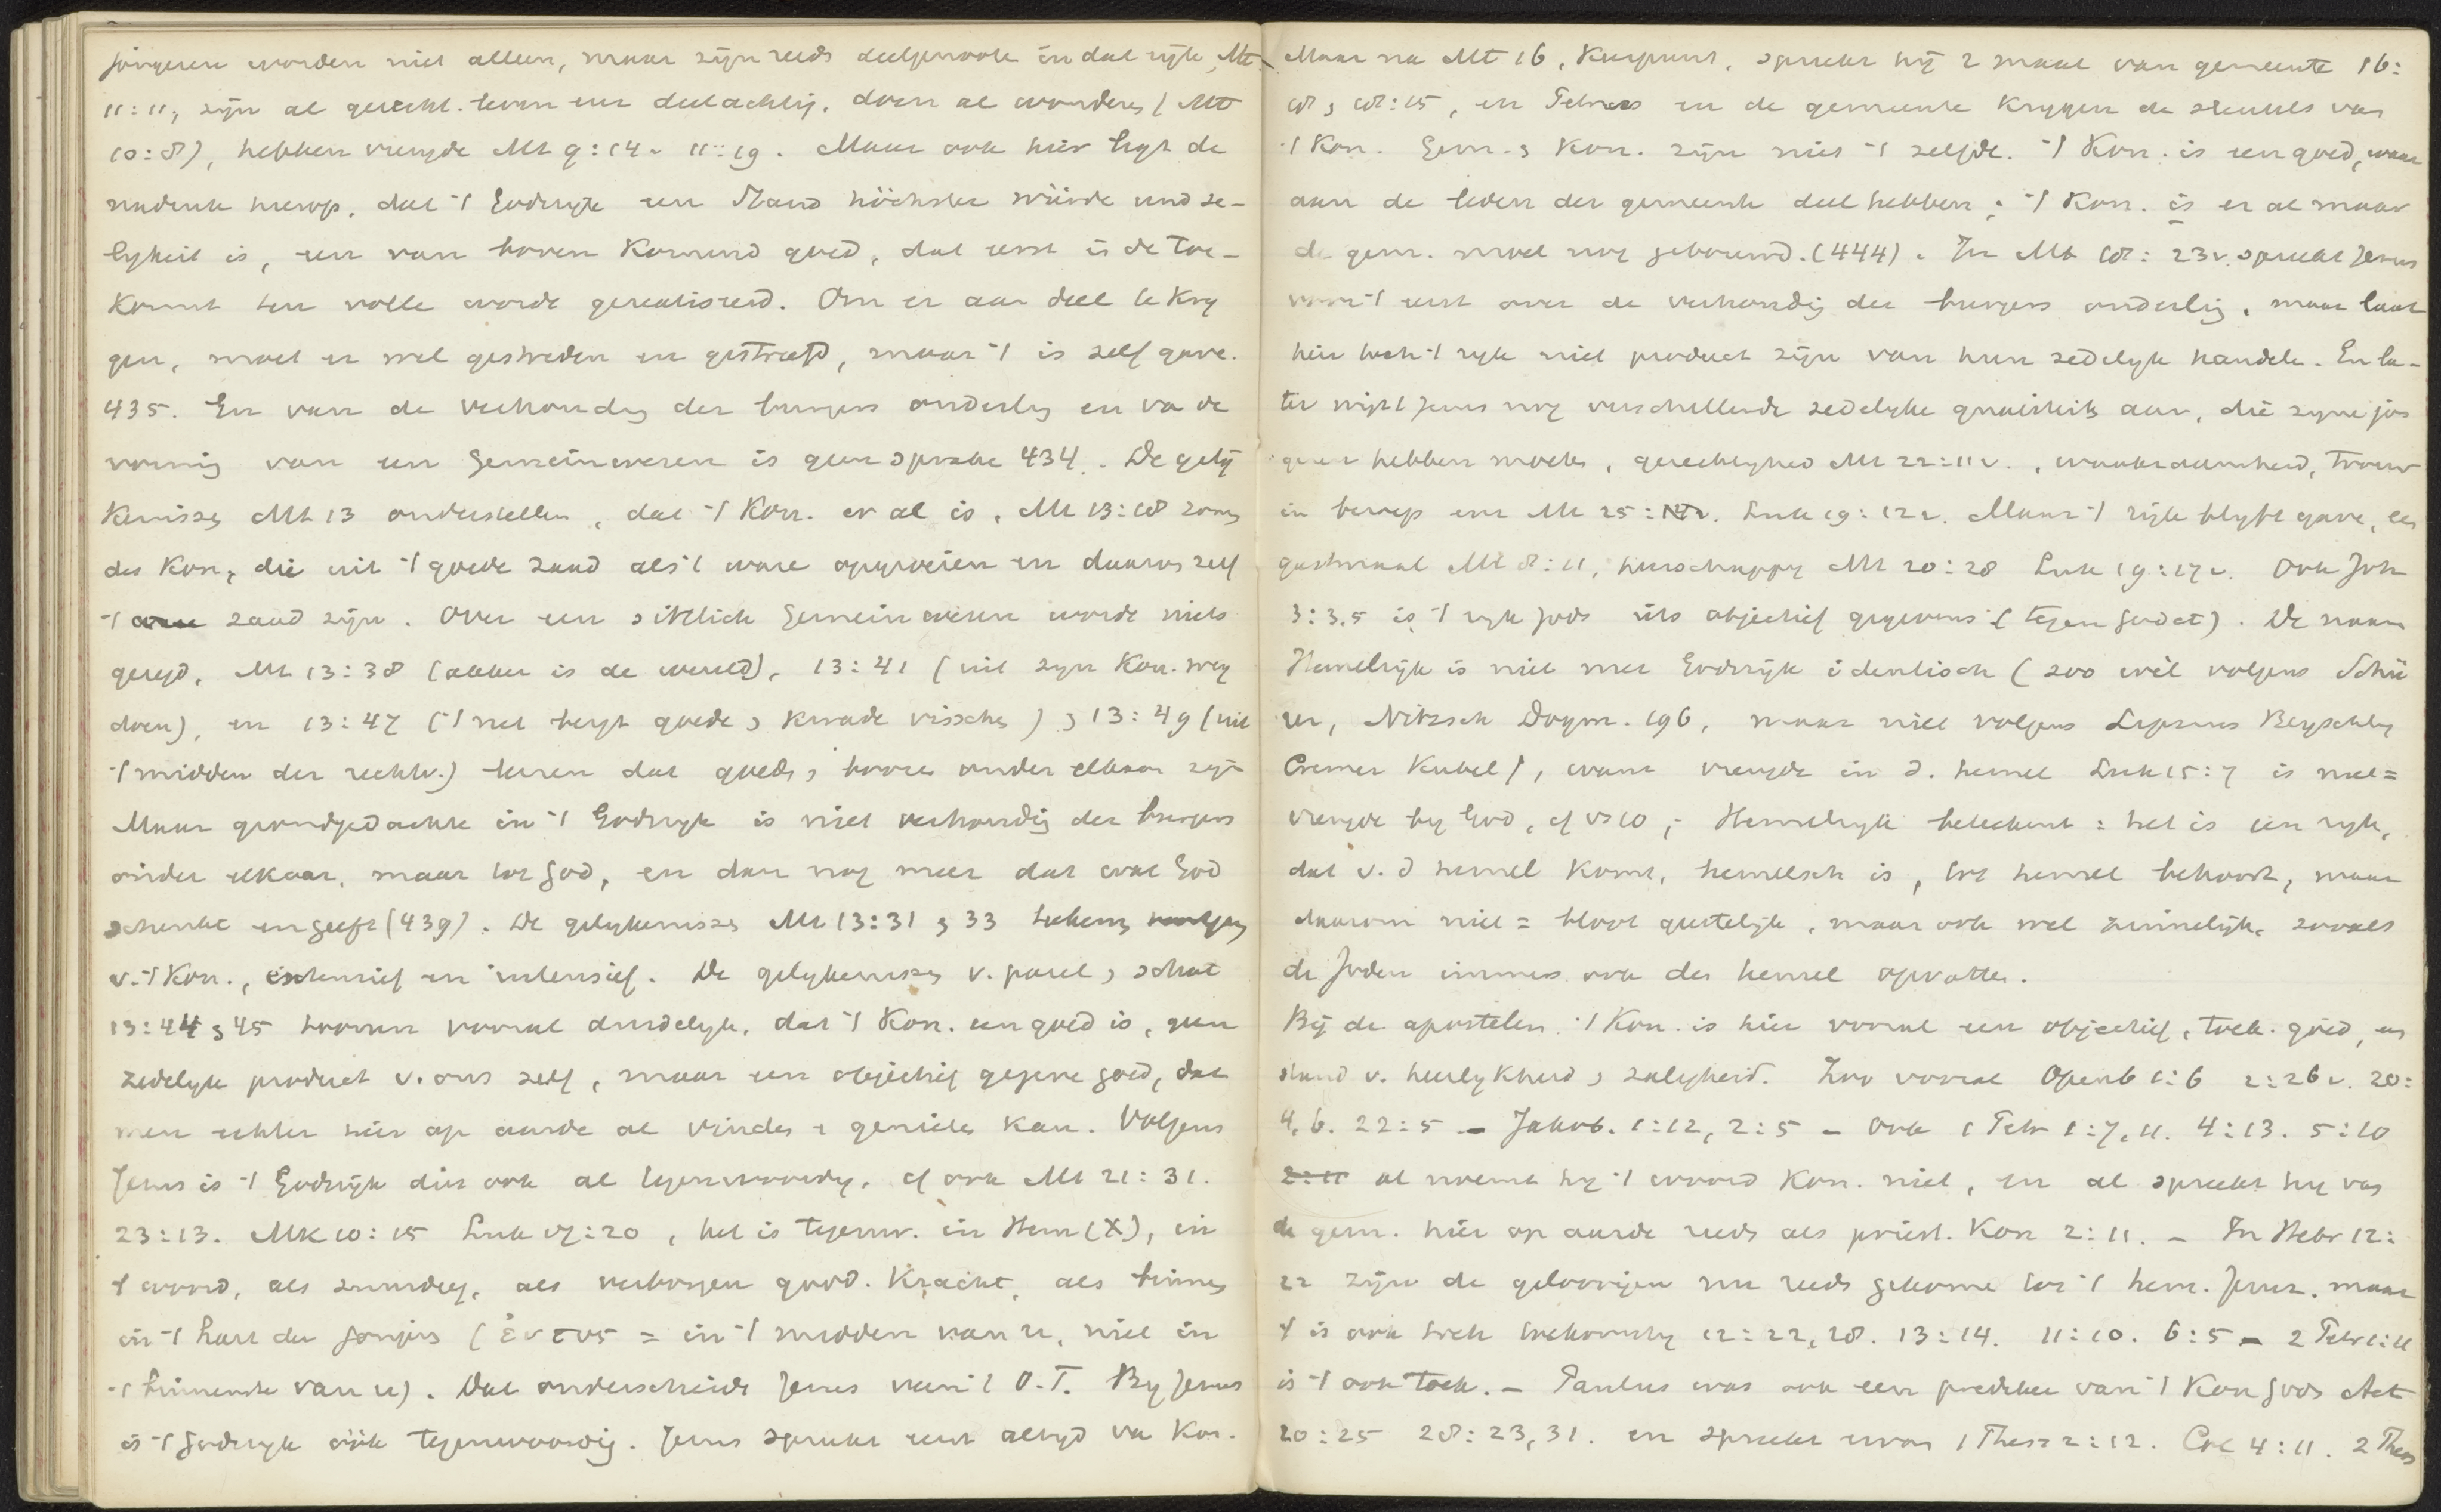 jongeren worden niet alleen, maar zijn reeds deelgenoote in dat rijk, Mt
11:11, zijn al gerecht. leven en deelachtig. doen al wonderen (Mt
10:8), hebben vreugde Mt 9:14v 11:19. Maar ook hier ligt de
nadruk hierop, dat 't Godsryk een Stand höchster würde und se-
ligkeit is, een van boven komend goed, dat eerst in de toe-
komst ten volle wordt gerealiseerd. Om er aan deel te kry
gen, moet er wel gestreden en gestreefd, maar 't is zelf gave.
435. En van de verhoudg der burgers onderlg en va de
vorming van een Gemeinwesen is geen sprake 434. De gelij
kenissen Mt 13 onderstellen, dat 't Kon. er al is, Mt 13:18 zonen
des Kon., die uit 't goede zaad als 't ware opgroeien en daarom zelf
't zaad zijn. Over een sittlich Gemeinwesen wordt niets
gezegd, Mt 13:38 (akker is de wereld), 13:41 (uit zijn Kon. weg
doen), en 13:47 ('t net bergt goede en kwade visschen) en 13:49 (uit
't midden der rechtv.) leeren dat goede en booze onder elkaar zijn
Maar grondgedachte in 't Godsryk is niet verhoudig der burgers
onder elkaar, maar tot God, en dan nog meer dat wat God
schenkt en geeft (439). De gelykenissen Mt 13:31 en 33 teekenen
v. 't Kon., extensief en intensief. De gelykenissen v. parel en schat
13:44 en 45 toonen vooral duidelyk, dat 't Kon. een goed is, geen
zedelyk product v. ons zelf, maar een objectief gegeven goed, dat
men echter hier op aarde al vinden en genieten kan. Volgens
Jezus is 't Godsrijk dus ook al tegenwoordig, cf ook Mt 21:31.
23:13. Mk 10:15 Luk 17:20, het is tegenw. in Hem (X), in
't woord, als zuurdeeg, als verborgen goed. Kracht, als binnen
in 't hart der jongeren (ἐντος = in 't midden van u, niet in
't binnenste van u). Dat onderscheidt Jezus van 't O.T. By Jezus
is 't Godsryk óók tegenwoordig. Jezus spreekt eerst altyd va Kon.
Maar na Mt 16, Keerpunt, spreekt hij 2 maal van gemeente 16:
18 en 18:15, en Petrus en de gemeente krygen de sleutels van
't Kon. Gem. en Kon. zijn niet 't zelfde. 't Kon. is een goed, waar
aan de leden der gemeente deel hebben; 't Kon. is er al maar
de gem. moet nog gebouwd. (444). In Mt 18:23v. spreekt Jezus
voor 't eerst over de verhoudig der burgers onderlig, maar laat
hier toch 't ryk niet product zijn van hun zedelyk handelen. En la-
ter wijst Jezus nog verschillende zedelyke aan, die zyne jon
geren hebben moeten, gerechtigheid Mt 22:11v., waakzaamheid, trouw
in beroep enz Mt 25:14v. Luk 19:12v. Maar 't rijk blyft gave, een
gastmaal Mt 8:11, heerschappy Mt 20:28 Luk 19:17v. Ook Joh
3:3,5 is 't ryk Gods iets objectief gegevens (tegen Godet). De naam
Hemelrijk is niet met Godsrijk identisch (zoo wèl volgens Schü
rer, Nitzsch Dogm. 196, maar niet volgens Lipsius Beyschlag
Cremer Kubel), want vreugde in d. hemel Luk 15:7 is niet =
vreugde by God, cf vs 10; Hemelryk beteekent: het is een ryk,
dat v. d hemel komt, hemelsch is, tot hemel behoort, maar
daarom niet = bloot geestelyk, maar ook wel zinnelijk, zooals
de Joden immers ook den hemel opvatten.
Bij de apostelen. 't Kon. is hier vooral een objectief, toek. goed, een
stand v. heerlykheid en zaligheid. Zoo vooral Openb 1:6 2:26v. 20:
4,6. 22:5 – Jakob. 1:12, 2:5 – Ook 1 Petr 1:7,11. 4:13. 5:10
2:11 al noemt hy 't woord Kon. niet, en al spreekt hy van
de gem. hier op aarde reeds als priest. Kon 2:11. – In Hebr 12:
22 zijn de geloovigen nu reeds gekome tot 't hem. Jeruz. maar
't is ook toch toekomstig 12:22,28. 13:14. 11:10. 6:5 – 2 Petr 1:11
is 't ook toek. – Paulus was ook een prediker van 't Kon Gods Act
20:25 28:23,31. en spreekt ervan 1 Thess 2:12. Col 4:11. 2 Thess